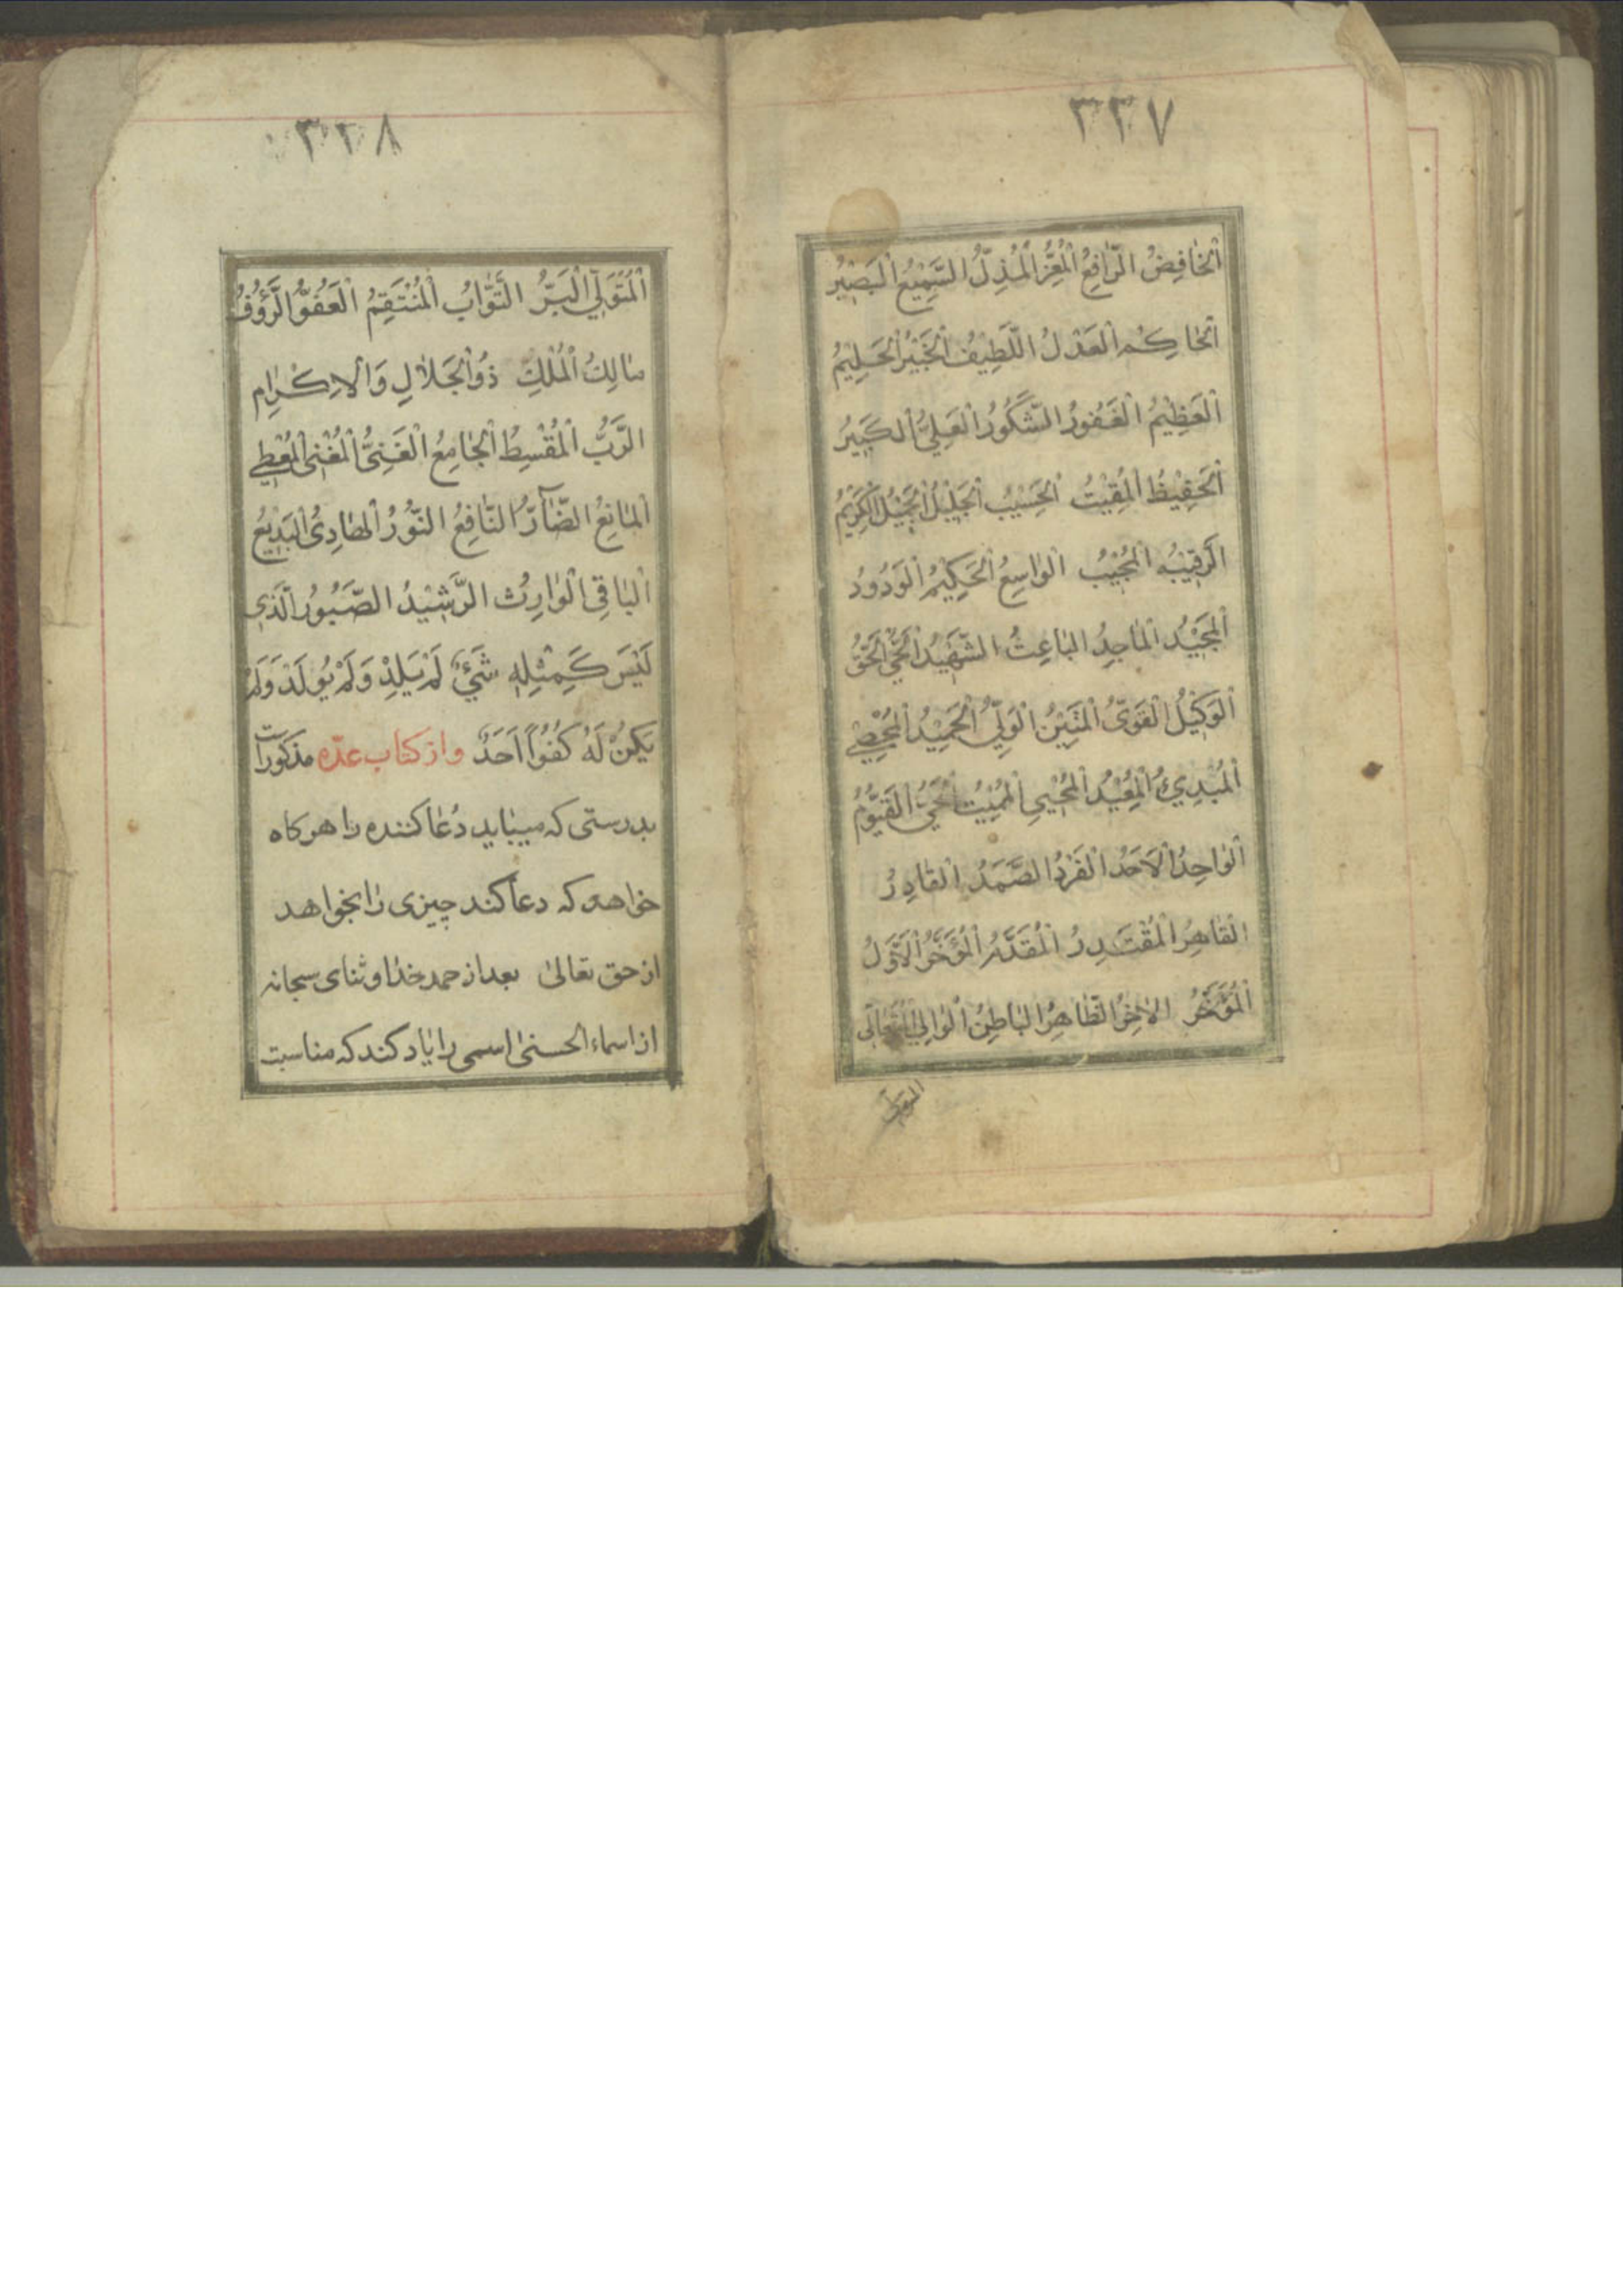 ٣٣٧
اَلْخٰافِضُ الرّٰافِعُ الْمُعِزُّ الْمُذِلُّ السَّمِيْعُ الْبَصِيْرُ
اَلْحٰاكِمُ الْعَدْلُ اللَّطِيْفُ الْخَبِيْرُ الْحَلِيْمُ
اَلْعَظِيْمُ الْغَفُورُ الشَّكُورُ الْعَلِيُّ الْكَبِيرُ
اَلْحَفِيْظُ الْمُقِيْتُ الْحَسِيْبُ الْجَلِيْلُ الْجَمِيْلُ الْكَرِيْمُ
الرَّقِيْبُ الْمُجِيْبُ الْوٰاسِعُ الْحَكِيْمُ الْوَدُودُ
اَلْمَجِيْدُ الْمٰاجِدُ الْبٰاعِثُ الشَّهِيْدُ الْحَقُّ
اَلْوَكِيْلُ الْقَوِيُّ الْمَتِيْنُ الْوَلِيُّ الْحَمِيْدُ الْمُحْصِي
اَلْمُبْدِئُ الْمُعِيْدُ الْمُحْيِي الْمُمِيْتُ الْحَيُّ الْقَيُّوْمُ
اَلْوٰاحِدُ الْاَحَدُ الْفَرْدُ الصَّمَدُ الْقٰادِرُ
الْقٰاهِرُ الْمُقْتَدِرُ الْمُقَدَّمُ الْمُؤَخَّرُ الْاَوَّلُ
اَلْمُؤَخَّرُ الْاٰخِرُ الظّٰاهِرُ الْبٰاطِنُ الْوٰالِي الْمُتَعٰالِي
٣٣٨
اَلْمُتَوَلِّي الْبَرُّ التَّوّٰابُ الْمُنْتَقِمُ الْعَفُوُّ الرَّؤُفُ
مٰالِكُ الْمُلْكِ ذُو الْجَلٰالِ وَالْاِكْرٰامِ
الرَّبُّ الْمُقْسِطُ الْجٰامِعُ الْغَنِيُّ الْمُغْنِي الْمُعْطِي
اَلْمٰانِعُ الضّٰآرُّ النّٰافِعُ النُّوْرُ الْهٰادِيُ الْبَدِيْعُ
اَلْبٰاقِي الْوٰارِثُ الرَّشِيْدُ الصَّبُورُ الَّذِي
لَيْسَ كَمِثْلِهِ شَيْئٌ لَمْ يَلِدْ وَلَمْ يُولَدْ وَلَمْ
يَكُنْ لَهُ كُفُوًا اَحَدٌ واز كتاب عدّه مذكورات
بدرستى كه ميبايد دُعٰا كننده را هركاه
خواهد كه دعا كند چيزى را بخواهد
از حق تعالىٰ بعد از حمد خدا و ثناى سبحانه
از اسماء الحسنىٰ اسمى را ياد كند كه مناسبت